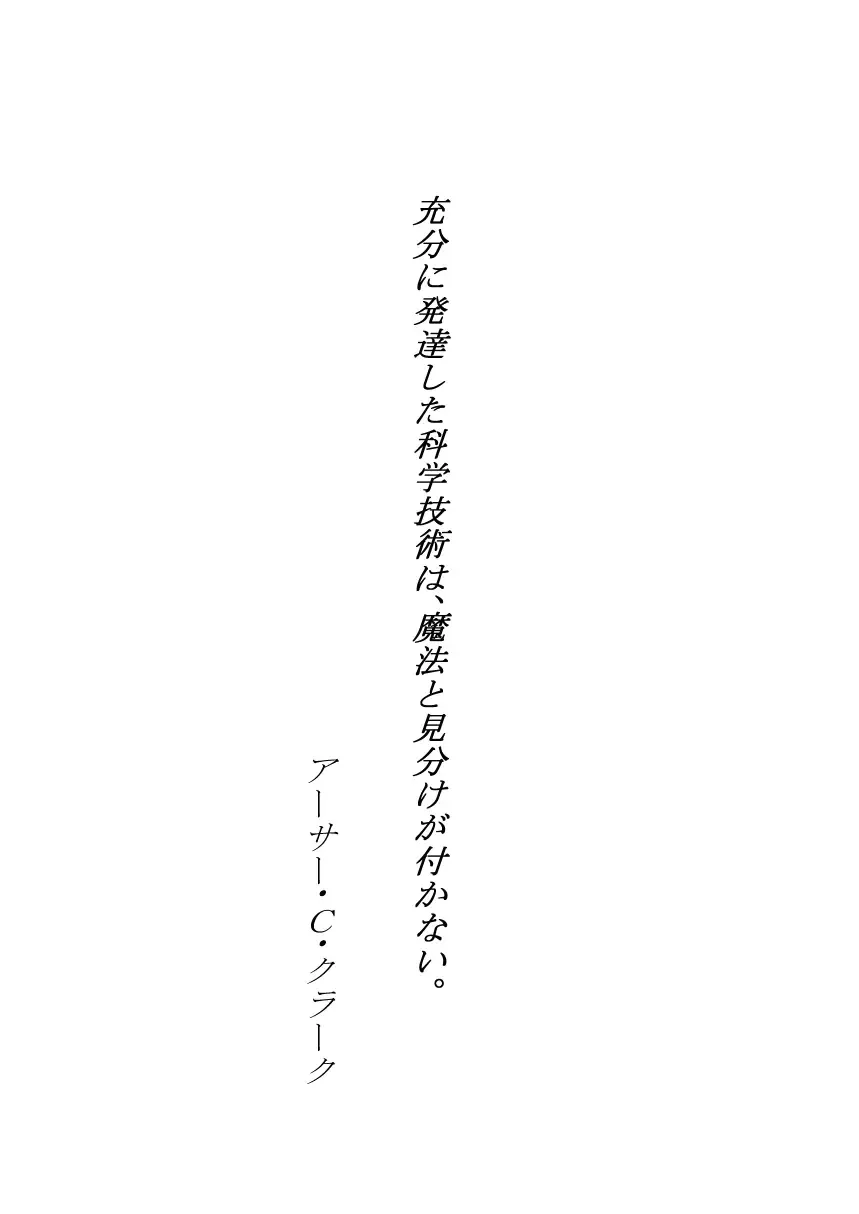 充分に発達した科学技術は、魔法と見分けが付かない。
アーサー・C・クラーク